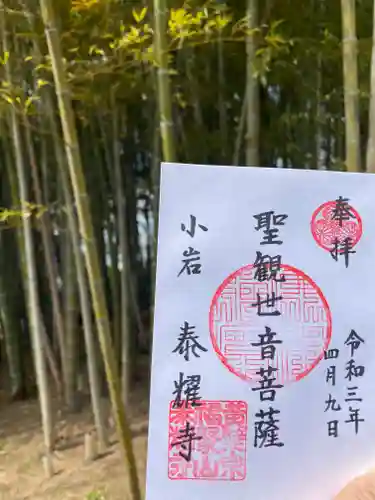 奉拝
令和三年
四月九日
聖観世音菩薩
小岩
泰耀寺